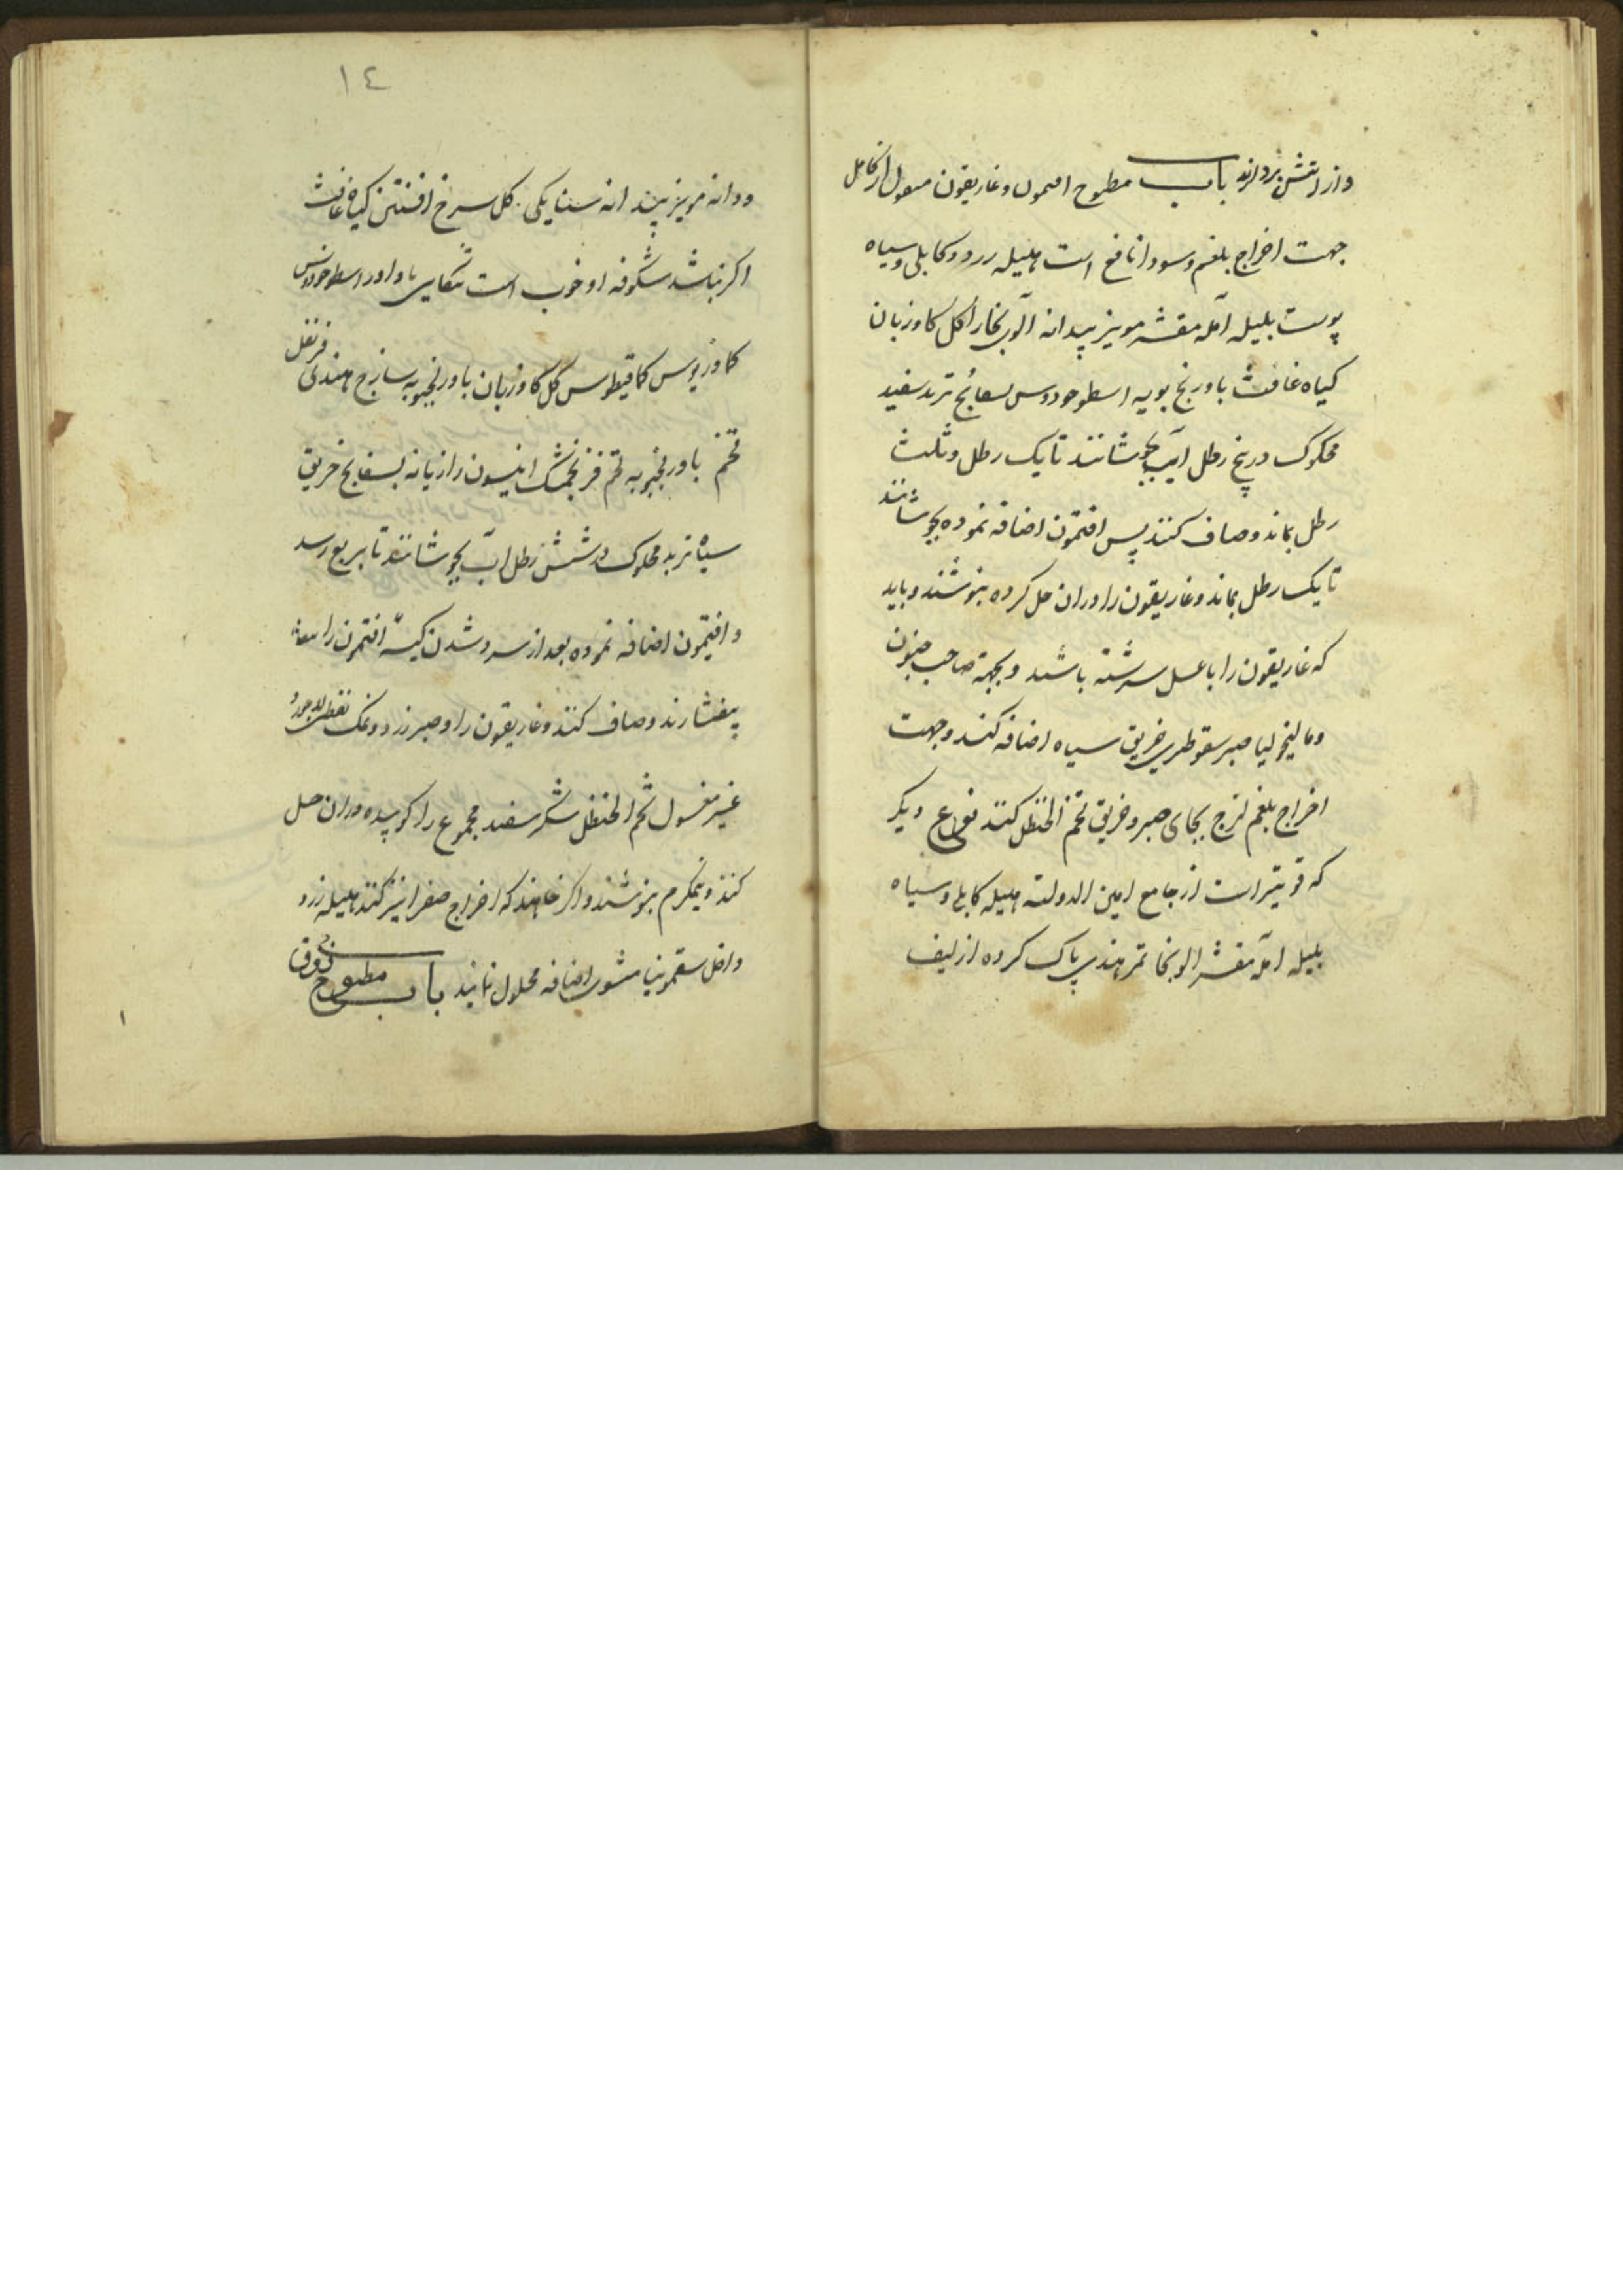 واز اتش بردارند باب مطبوح افتیمون وغاریقون منقول از کامل
جهت اخراج بلغم وسودا نافع است هلیله زرد وکابلی وسیاه
پوست بلیله آمله مقشر مویز بیدانه آلوی بخارا کل کاوزبان
کیاه غافث بادرنج بویه اسطوخودوس بسفایج تربد سفید
محکوک در پنج رطل آب بجوشانند تا یک رطل وثلث
رطل بماند وصاف کنند پس افتیمون اضافه نموده بجوشانند
تا یک رطل بماند وغاریقون را دران حل کرده بنوشند وباید
که غاریقون را باعسل سرشته باشند وبجهة صاحب جنون
ومالیخولیا صبر سقوطری خربق سیاه اضافه کنند وجهت
اخراج بلغم لزج بجای صبر وخربق شحم الحنظل کنند نوع دیکر
که قویتر است از جامع امین الدولته هلیله کابلی وسیاه
بلیله آمله مقشر الوبخا تمر هندی پاک کرده از لیف
١٤
ودانه مویز بیدانه سنا یکی کل سرخ افسنتین کیاه غافث
اکر نباشد شکوفه او خوب است شکاعی باداورد اسطوخودوس
کمادریوس کمافیطوس کل کاوزبان بادرنجبویه ساذج هندی قرنفل
تخم بادرنجبویه تخم فرنجمشک انیسون رازیانه بسفایج خربق
سیاه تربد محکوک در شش رطل آب بجوشانند تا بربع رسد
وافتیمون اضافه نموده بعد از سرد شدن کیسه افتیمون را
بیفشارند وصاف کنند وغاریقون را وصبر زرد ونمک نفطی لاجورد
غیر مغسول شحم الحنظل شکر سفید مجموع را کوبیده دران حل
کنند ونیمکرم بنوشند واکر خواهند که اخراج صفرا نیز کند هلیله زرد
داخل سقمونیا مشوی اضافه محلول نمایند باب مطبوخ